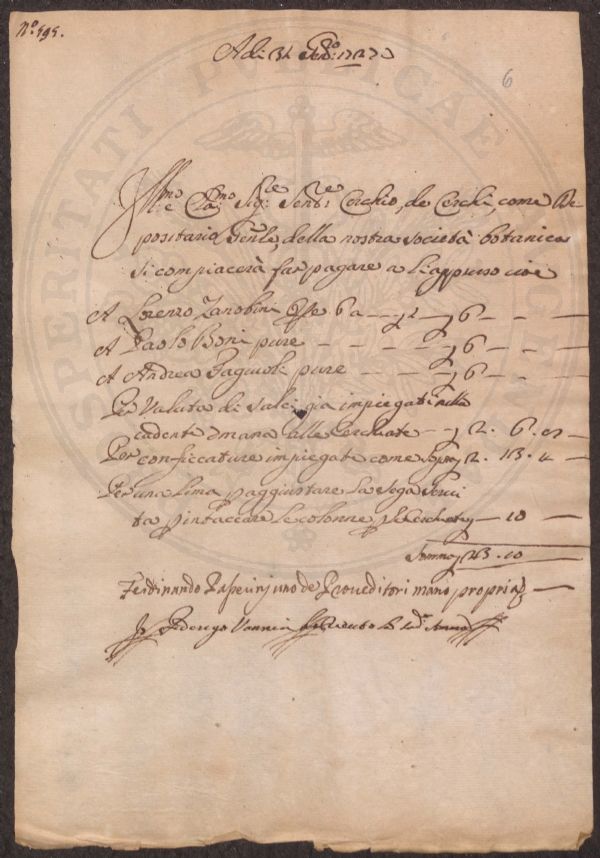 Nº: 595.
6
Adi 31 Genº: 1727
Illmo e Clmo Sigre Senre Cerchio, de Cerchi, come De-
positario Genle, della nostra società botanica
si compiacerà far pagare a l'appresso cioè
A Lorenzo Zanobini 6 6 — —
A Paolo Boni pure — — — — 6 — —
A Andrea Fagiuoli pure — — — 6 — —
Per Valuta di Salci già impiegati nella
cadente alle Cerchiate — 2. 6.
Per conficcature impiegate come sopra 2. 13. 4
Per una Lima p aggiustare la Sega
ta p intaccare le colonne 10 —
Somma 23. 10
Ferdinando uno de Proveditori mano propria —
Io Federigo Vannini